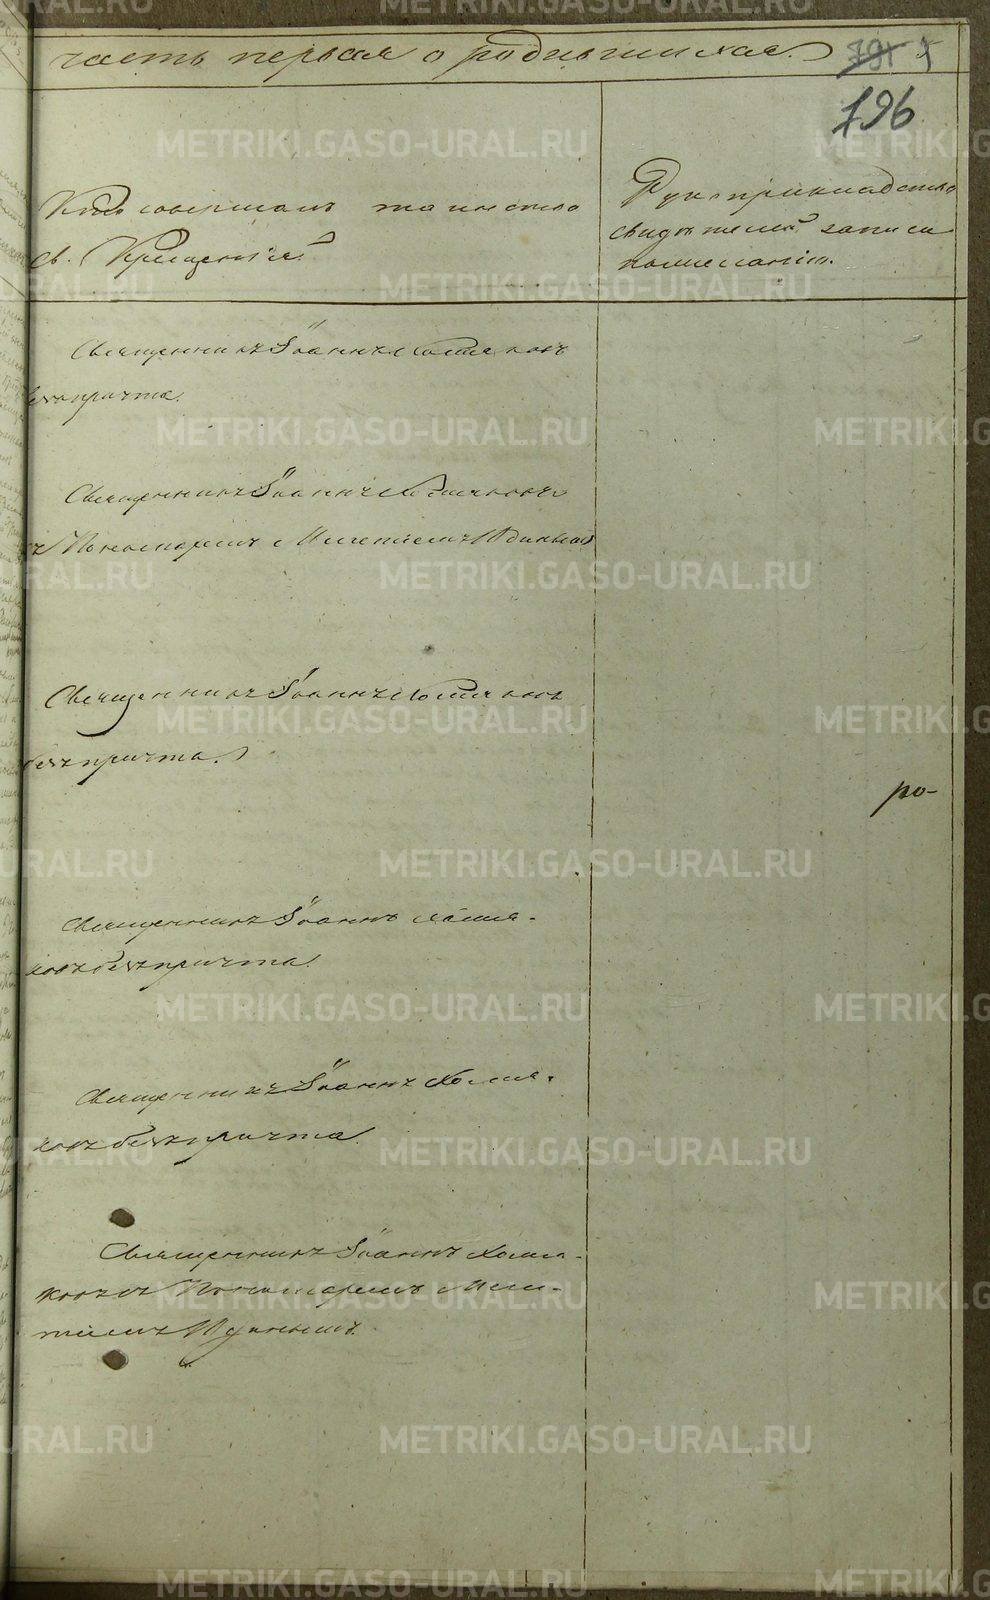 часть первая о родившихся.
796
Кто совершалъ таинство
св. Крещенія
Рукоприкладство
свидѣтелей записи
по желанію.
Священникъ Іоаннъ Хомяковъ
безъ причта.
Священникъ Іоаннъ Хомяковъ
съ Пономаремъ
Священникъ Іоаннъ Хомяковъ
безъ причта.
ро-
Священникъ Іоаннъ Хомя-
ковъ безъ причта.
Священникъ Іоаннъ Хомя-
ковъ безъ причта.
Священникъ Іоаннъ Хомя-
ковъ съ Пономаремъ
METRIKI.GASO-URAL.RU